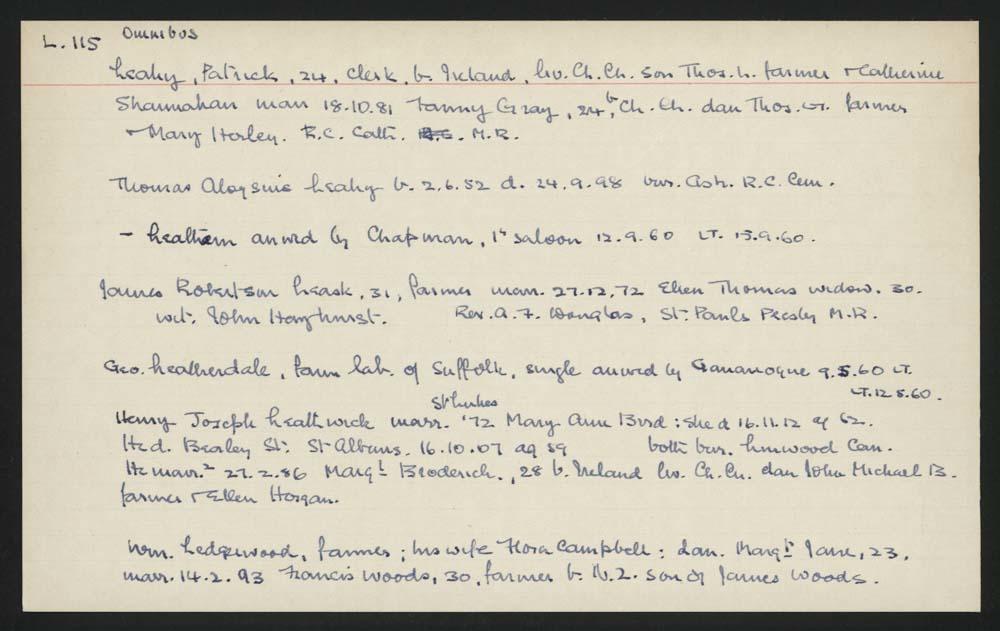 L. 115 Omnibus
Leahy, Patrick, 24, Clerk, b. Ireland, liv. Ch.Ch. son Thos. L. farmer & Catherine
Shannahan marr 18.10.81 Fanny Gray, 24, b. Ch. Ch. dau Thos. G. farmer
& Mary Horley. R.C. Cath. M.R.
Thomas Aloysius Leahy b. 2.6.52 d. 24.9.98 bur. Ash. R.C. Cem.
- Leathem arrvd by Chapman, 1st saloon 12.9.60 LT. 15.9.60.
James Robertson Leask, 31, farmer marr. 27.12.72 Ellen Thomas widow. 30.
wit. John Hayhurst. Rev. A. F. Douglas, St. Pauls Presby M.R.
Geo. Leatherdale, farm lab. of Suffolk, single arrvd by Gananoque 9.5.60 LT.
LT. 12.5.60.
St Lukes
Henry Joseph Leathwick marr. '72 Mary Ann Bird : she d 16.11.12 ag 62.
He d. Bealey St. St Albans, 16.10.07 ag 59 both bur. Linwood Cem.
He marr.2 27.2.86 Margt Broderick, 28 b. Ireland liv. Ch.Ch. dau John Michael B.
farmer & Ellen Horgan.
Wm. Ledgerwood, farmer ; his wife Flora Campbell : dau. Margt Jane, 23,
marr. 14.2.93 Francis Woods, 30, farmer b. N.Z. son of James Woods.